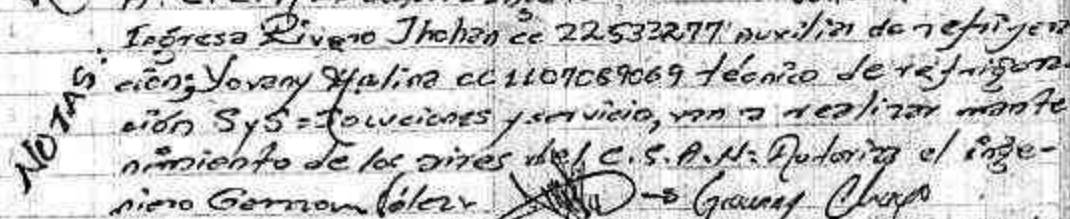 NOTAS:
Ingresa Rivero Jhohan cc 22532277 auxiliar de refrigera
ción; Yovany Molina cc 1107089069 técnico de refrigera
ción SyS = Soluciones y servicio, van a realizar mante
nimiento de los aires del C.S.A.H. Autoriza el inge-
niero German